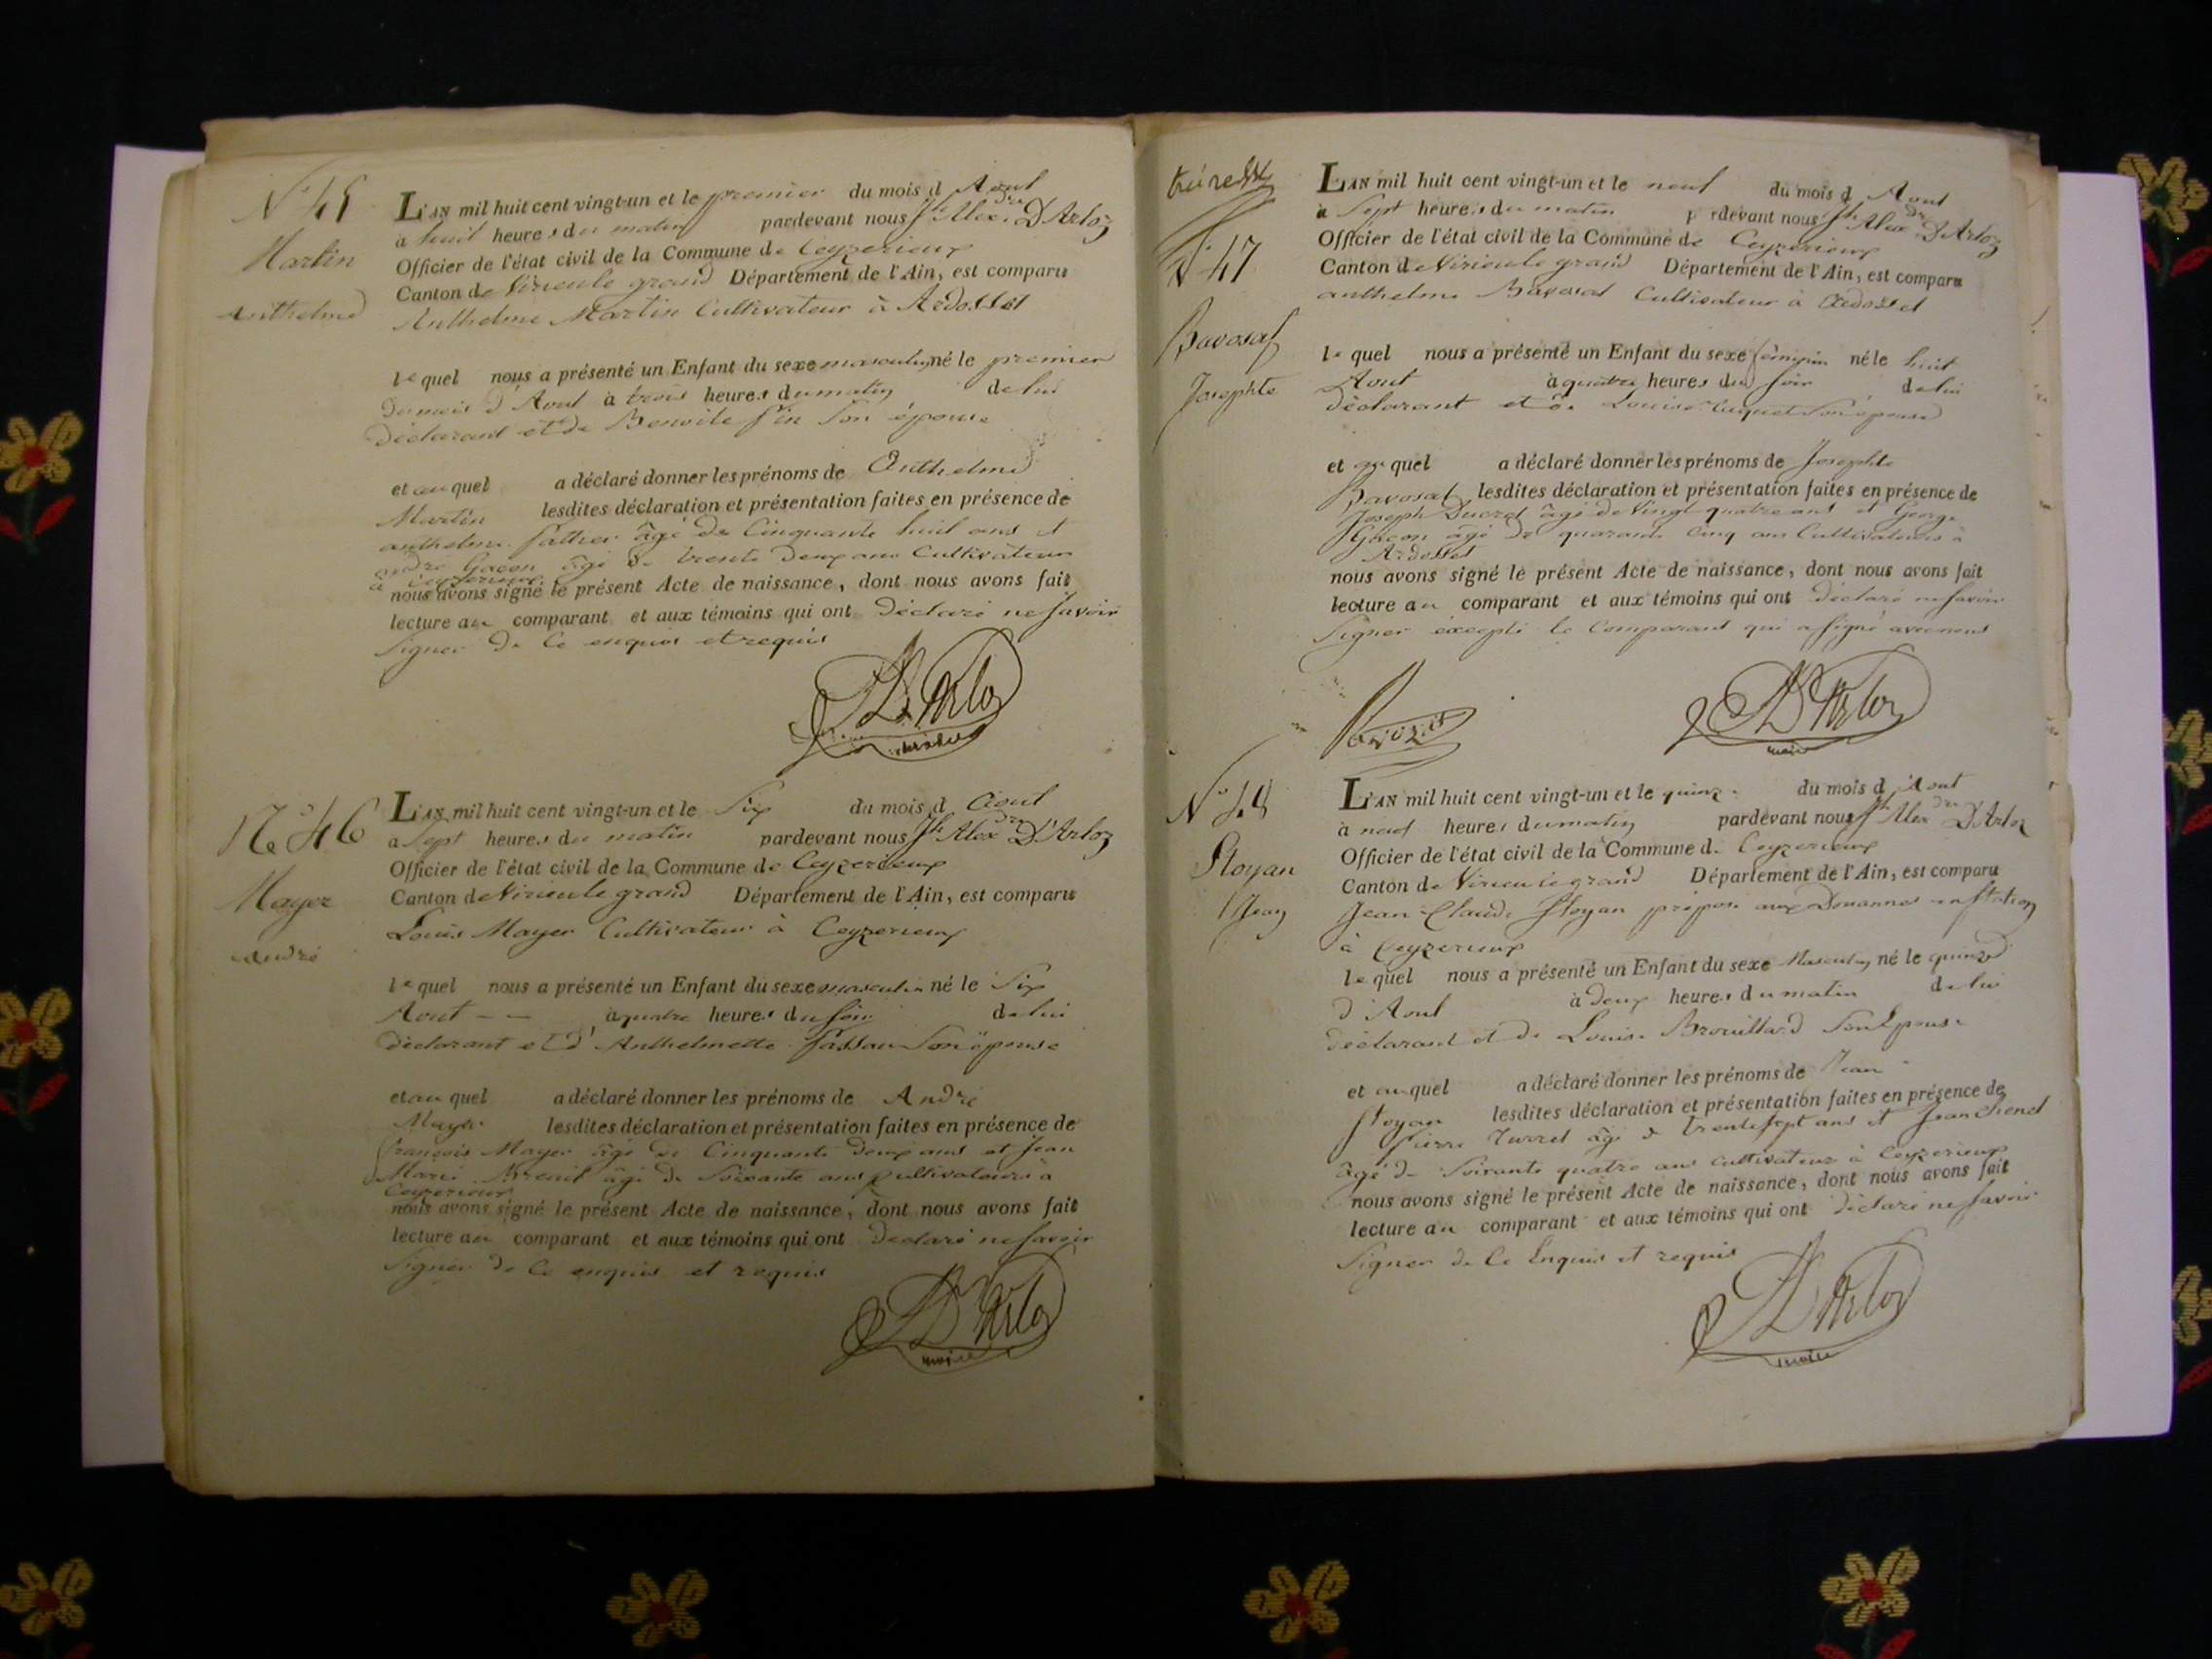 N° 45
Martin
Anthelme
L'AN mil huit cent vingt-un et le premier du mois d Aout
a huit heures du matin pardevant nous Jh Alexdre D'Arloz
Officier de l'état civil de la Commune de Ceyzerieux
Canton de Virieule grand Département de l'Ain, est comparu
Anthelme Martin Cultivateur à Ardosset
le quel nous a présenté un Enfant du sexe masculin né le premier
du mois d'Aout à trois heures du matin de lui
déclarant et de Benoite son épouse
et au quel a déclaré donner les prénoms de Anthelme
Martin lesdites déclaration et présentation faites en présence de
anthelme âgé de Cinquante huit ans et
andre Gacon âgé de trente deux ans Cultivateurs
à Ceyzerieux
nous avons signé le présent Acte de naissance, dont nous avons fait
lecture au comparant et aux témoins qui ont déclaré ne savoir
signer de ce enquis et requis
D'Arloz
maire
N° 46
Mayer
André
L'AN mil huit cent vingt-un et le Six du mois d Aout
a Sept heures du matin pardevant nous Jh Alexdre D'Arloz
Officier de l'état civil de la Commune de Ceyzerieux
Canton de Virieule grand Département de l'Ain, est comparu
Louis Mayer Cultivateur à Ceyzerieux
le quel nous a présenté un Enfant du sexe masculin né le Six
Aout - - à quatre heures du soir de lui
déclarant et d'Anthelmette son épouse
et au quel a déclaré donner les prénoms de André
Mayer lesdites déclaration et présentation faites en présence de
françois Mayer âgé de Cinquante deux ans et Jean
Marie âgé de Soixante ans Cultivateurs à
Ceyzerieux
nous avons signé le présent Acte de naissance, dont nous avons fait
lecture au comparant et aux témoins qui ont déclaré ne savoir
signer de ce enquis et requis
D'Arloz
maire
N° 47
Bavosat
Josephte
L'AN mil huit cent vingt-un et le neuf du mois d Aout
a Sept heures du matin p rdevant nous Jh Alexdre D'Arloz
Officier de l'état civil de la Commune de Ceyzerieux
Canton de Virieule grand Département de l'Ain, est comparu
anthelme Bavosat Cultivateur à Ardosset
le quel nous a présenté un Enfant du sexe féminin né le huit
Aout à quatre heures du soir de lui
déclarant et de Louise son épouse
et au quel a déclaré donner les prénoms de Josephte
Bavosat lesdites déclaration et présentation faites en présence de
Joseph Ducret âgé de Vingt quatre ans et George
Gacon âgé de quarante Cinq ans Cultivateurs à
Ardosset
nous avons signé le présent Acte de naissance, dont nous avons fait
lecture au comparant et aux témoins qui ont déclaré ne savoir
Signer excepté le Comparant qui a signé avec nous
Bavozat
D'Arloz
maire
N° 48
Stoyan
Jean
L'AN mil huit cent vingt-un et le quinze du mois d Aout
à neuf heures du matin pardevant nous Jh Alexdre D'Arloz
Officier de l'état civil de la Commune de Ceyzerieux
Canton de Virieule grand Département de l'Ain, est comparu
Jean Claude Stoyan préposé aux Douannes en station
à Ceyzerieux
le quel nous a présenté un Enfant du sexe Masculin né le quinze
d'Aout à deux heures du matin de lui
déclarant et de Louise Brouillard son Epouse
et au quel a déclaré donner les prénoms de Jean
Stoyan lesdites déclaration et présentation faites en présence de
pierre âgé de trente sept ans et Jean
âgé de Soixante quatre ans Cultivateur à Ceyzerieux
nous avons signé le présent Acte de naissance, dont nous avons fait
lecture au comparant et aux témoins qui ont déclaré ne savoir
Signer de Ce Enquis et requis
D'Arloz
maire